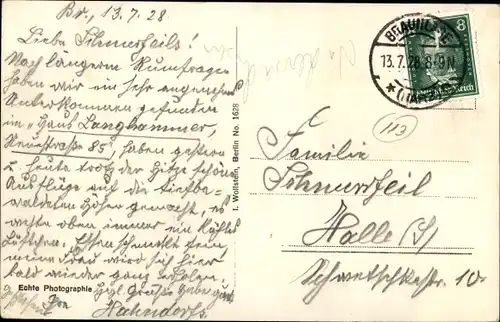 Br., 13.7.28
Liebe Schmerfeils!
Nach längerem Rumfragen
haben wir ein sehr angenehmes
Unterkommen gefunden
in "Haus Langhammer,
Neuestraße 85", haben gestern
u. heute trotz der Hitze schöne
Ausflüge auf die tiefbe-
waldeten Höhen gemacht, es
wehte oben immer ein kühles
Lüftchen. Essen schmeckt fein
meine Frau wird sich hier
bald wieder ganz erholen.
Hzgl. Grüße
Hahndorfs
Echte Photographie
I. Wollstein, Berlin No. 1628
BRAUNLAGE
13.7.28.8-9N
(HARZ)
8
Deutsches Reich
113
Familie
Schmerfeil
Halle (S)
Schwetschkestr. 10